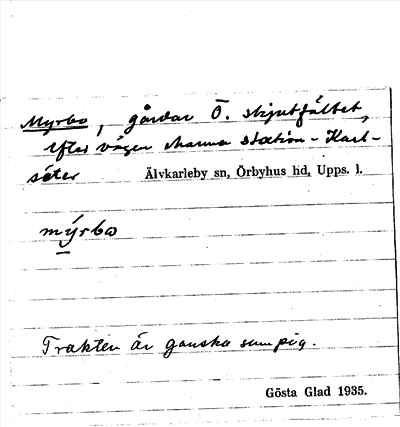 Myrbo, gårdar Ö. skjutfältet,
efter vägen Marma station - Karl-
säter Älvkarleby sn, Örbyhus hd, Upps. l.
mýrbo
Trakten är ganska sumpig.
Gösta Glad 1935.